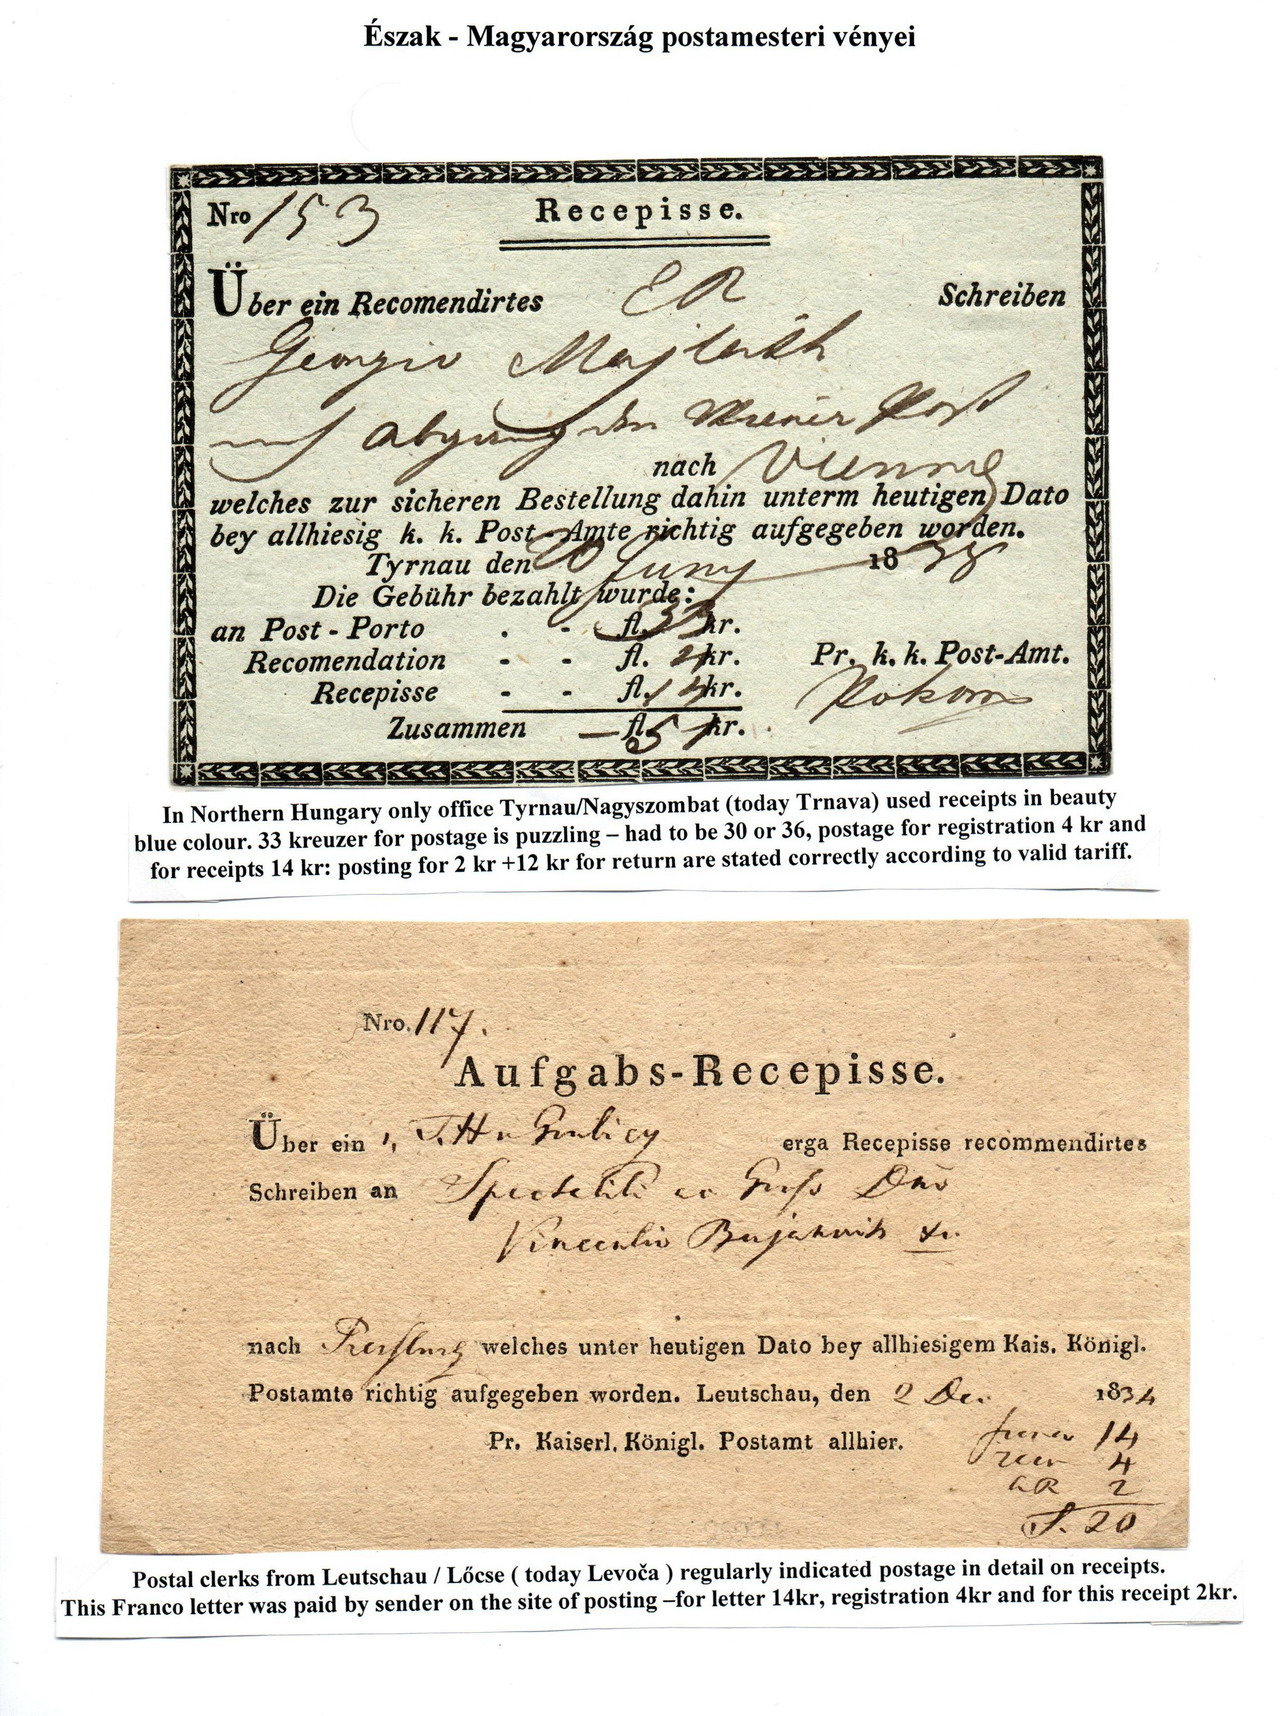 Észak - Magyarország postamesteri vényei
Nro 153 Recepisse.
Über ein Recomendirtes ER Schreiben
Georgio Majlath
Abgang den Wiener Post
nach Vienne
welches zur sicheren Bestellung dahin unterm heutigen Dato
bey allhiesig k. k. Post-Amte richtig aufgegeben worden.
Tyrnau den 20 Juny 1838
Die Gebühr bezahlt wurde:
an Post-Porto . - fl. 33 kr.
Recomendation - - fl. 4 kr. Pr. k. k. Post-Amt.
Recepisse - - fl. 14 kr.
Zusammen — fl. 51 kr.
In Northern Hungary only office Tyrnau/Nagyszombat (today Trnava) used receipts in beauty
blue colour. 33 kreuzer for postage is puzzling – had to be 30 or 36, postage for registration 4 kr and
for receipts 14 kr: posting for 2 kr +12 kr for return are stated correctly according to valid tariff.
Nro. 117.
Aufgabs-Recepisse.
Über ein erga Recepisse recommendirtes
Schreiben an
Vincentio
nach Pressburg welches unter heutigen Dato bey allhiesigem Kais. Königl.
Postamte richtig aufgegeben worden. Leutschau, den 2 Dec. 1834
Pr. Kaiserl. Königl. Postamt allhier. 14
4
2
S. 20
Postal clerks from Leutschau / Lőcse ( today Levoča ) regularly indicated postage in detail on receipts.
This Franco letter was paid by sender on the site of posting –for letter 14kr, registration 4kr and for this receipt 2kr.